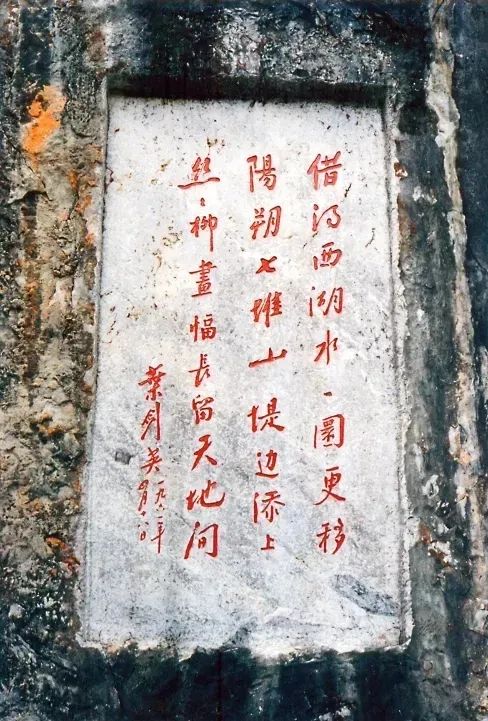 借得西湖水一圜更移
陽朔七堆山堤边添上
丝丝柳畫幅長留天地间
葉剑英一九六二年